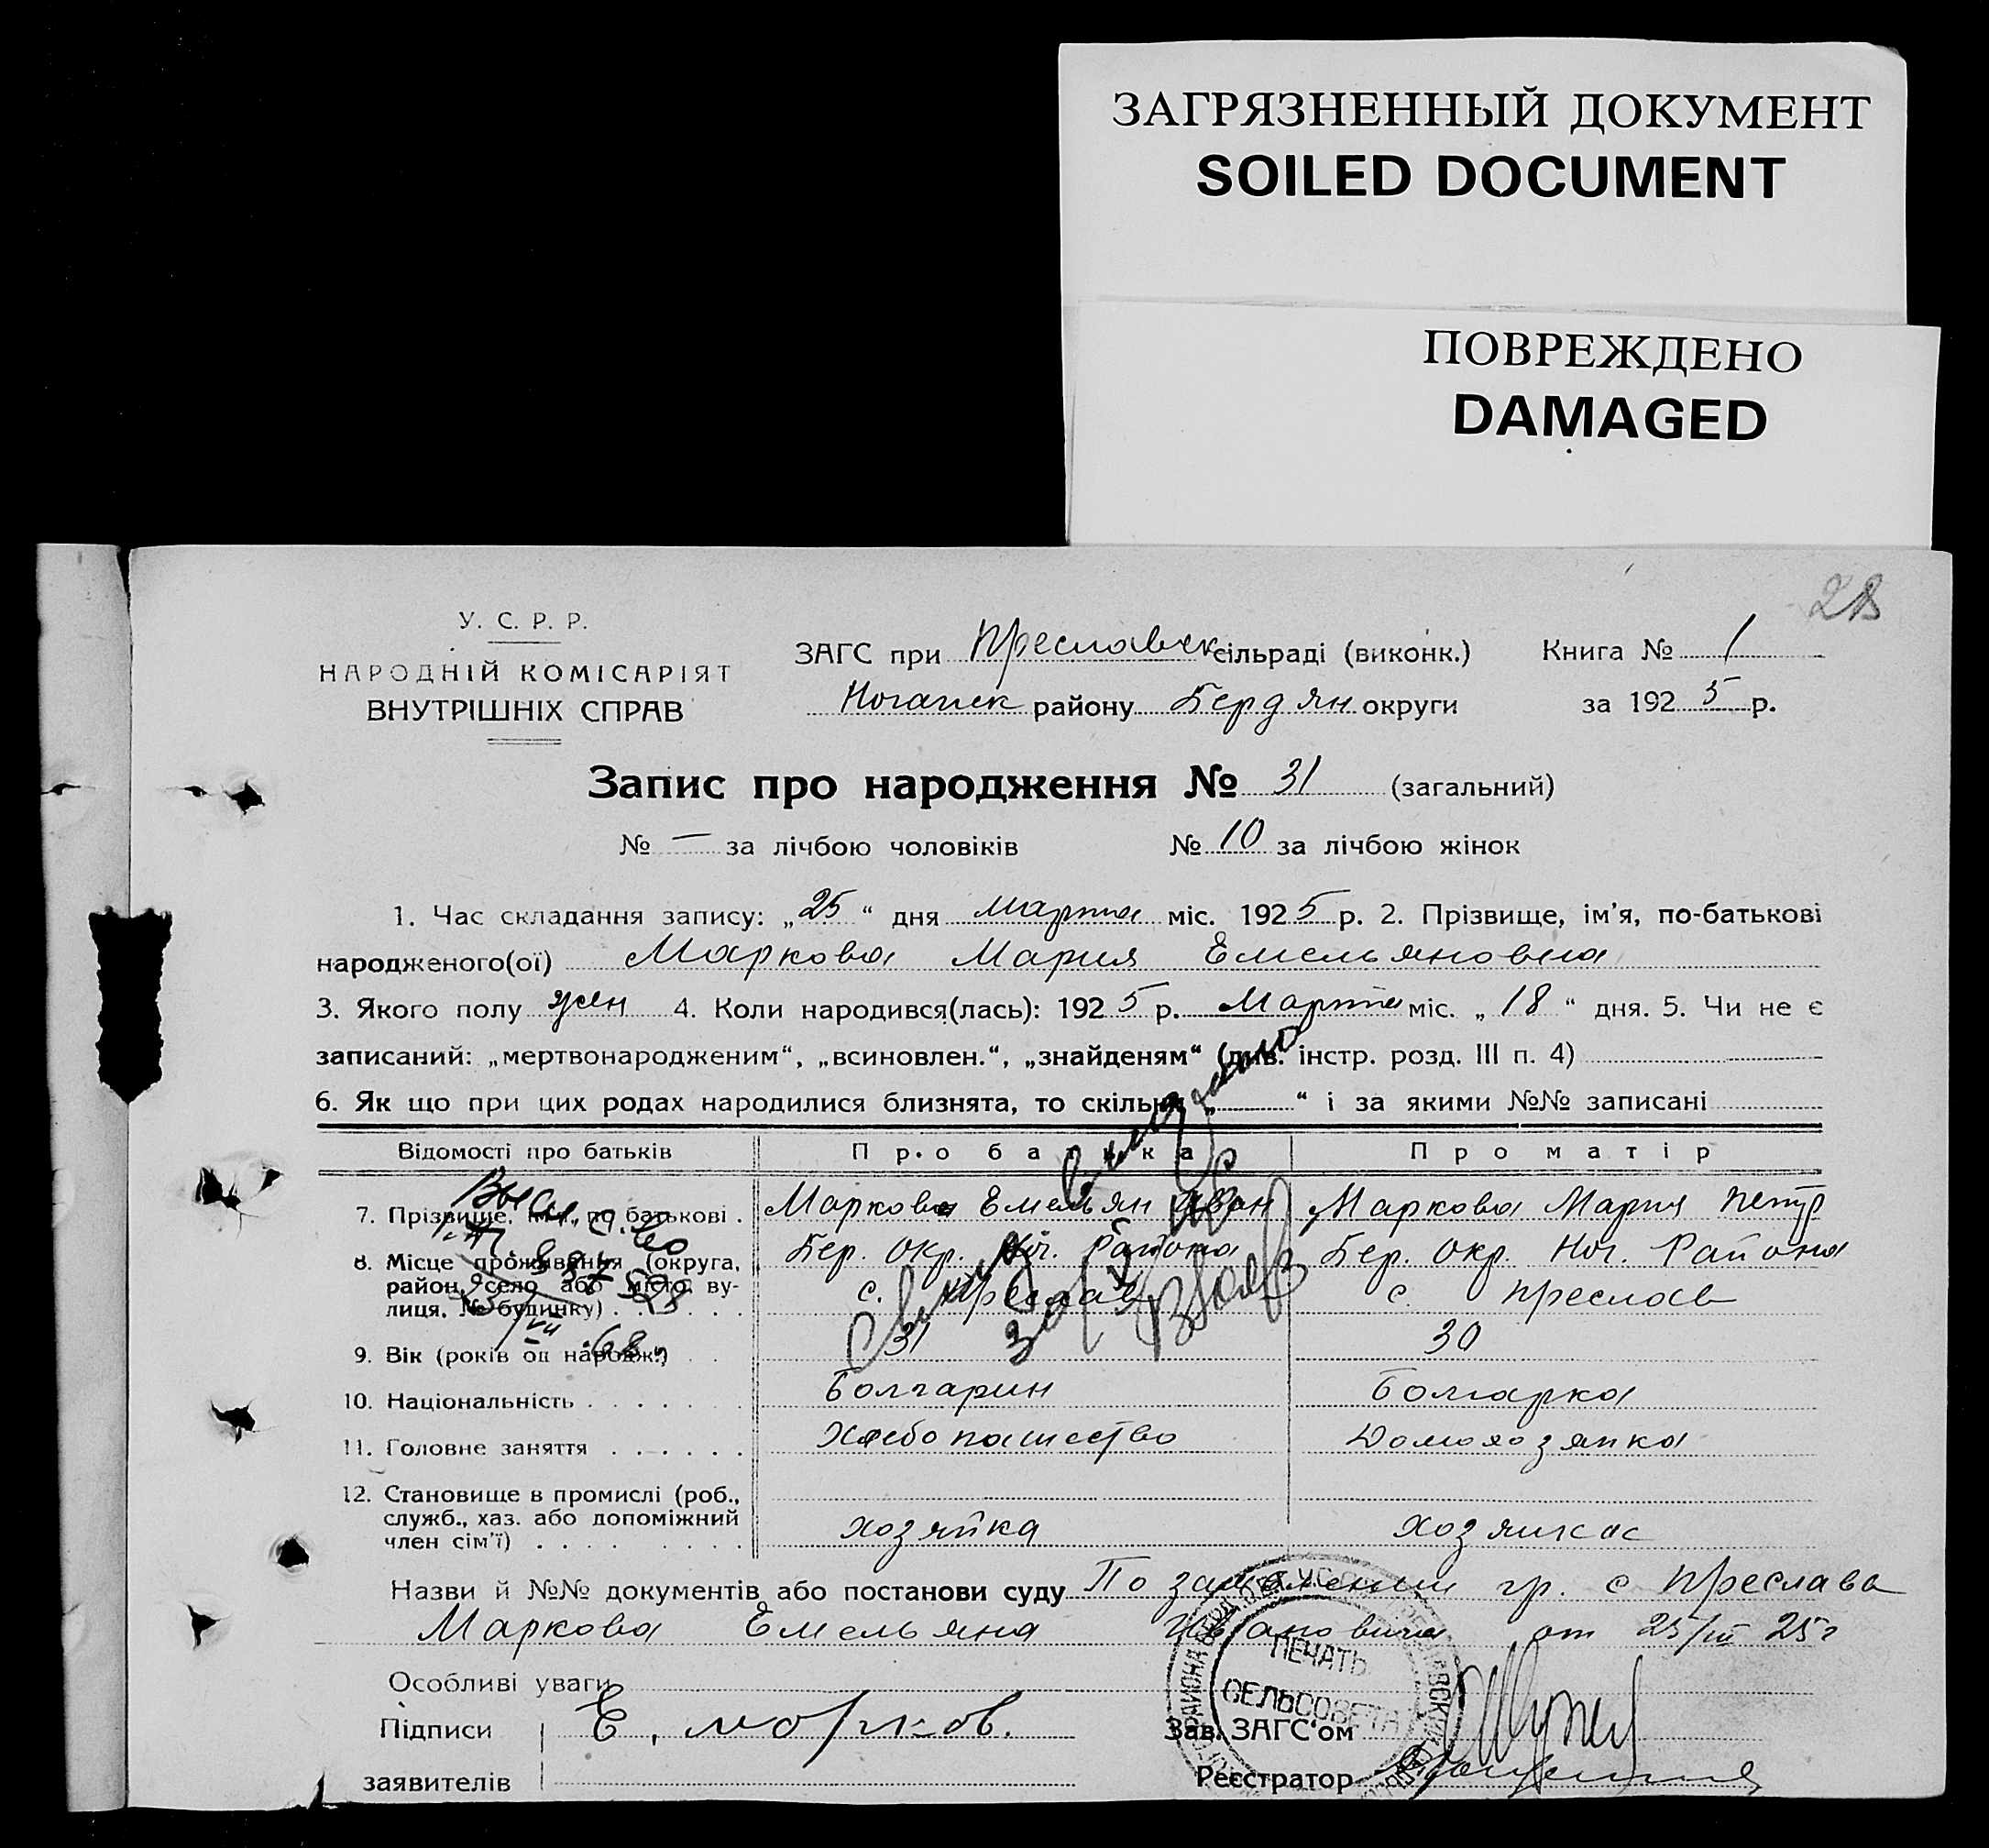 ЗАГРЯЗНЕННЫЙ ДОКУМЕНТ
SOILED DOCUMENT
ПОВРЕЖДЕНО
DAMAGED
28
У. С. Р. Р.
НАРОДНІЙ КОМІСАРІЯТ
ВНУТРІШНІХ СПРАВ
ЗАГС при Преславск сільраді (виконк.) Книга № 1
Ногайск району Бердян округи за 1925 р.
Запис про народження № 31 (загальний)
№ — за лічбою чоловіків № 10 за лічбою жінок
1. Час складання запису: „25“ дня Марта міс. 1925 р. 2. Прізвище, ім'я, по-батькові
народженого(ої) Маркова Мария Емельяновна
3. Якого полу жен 4. Коли народився(лась): 1925 р. Марта міс. „18“ дня. 5. Чи не є
записаний: „мертвонародженим“, „всиновлен.“, „знайденям“ (див. інстр. розд. III п. 4)
6. Як що при цих родах народилися близнята, то скільки „ “ і за якими №№ записані
Відомості про батьків Про батька Про матір
7. Прізвище, ім'я, по батькові . Марков Емельян Иван Маркова Мария Петр
8. Місце проживання (округа, район, село або місто, вулиця, № будинку) . . . Бер. Окр. Ног. Района Бер. Окр. Ног. Района
с. Преслав с. Преслав
9. Вік (років од народж.) . . 31 30
10. Національність . . . . . . . Болгарин Болгарка
11. Головне заняття . . . . . . Хлебопашество Домохозяйка
12. Становище в промислі (роб.,
служб., хаз. або допоміжний
член сім'ї) . . . . . . . . хозяйка хозяйка
Назви й №№ документів або постанови суду По заявлении гр. с Преслава
Маркова Емельяна Ивановича от 25/III 25г
Особливі уваги
Підписи Е. Морков. Зав. ЗАГС'ом
заявителів Реєстратор
ПЕЧАТЬ
СЕЛЬСОВЕТА